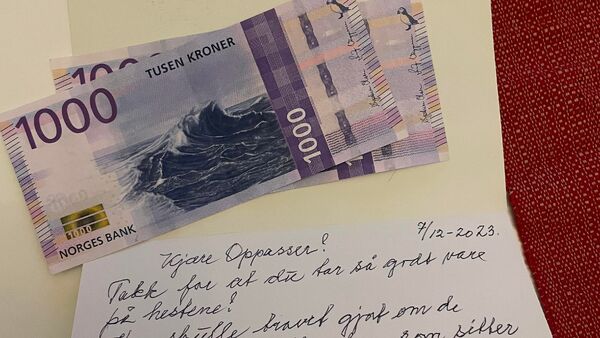 1000
TUSEN KRONER
1000
1000
1000
NORGES BANK
7/12-2023.
Kjære Oppasser!
Takk for at du tar så godt vare
på hestene!
skulle travet gjort om de
som sitter